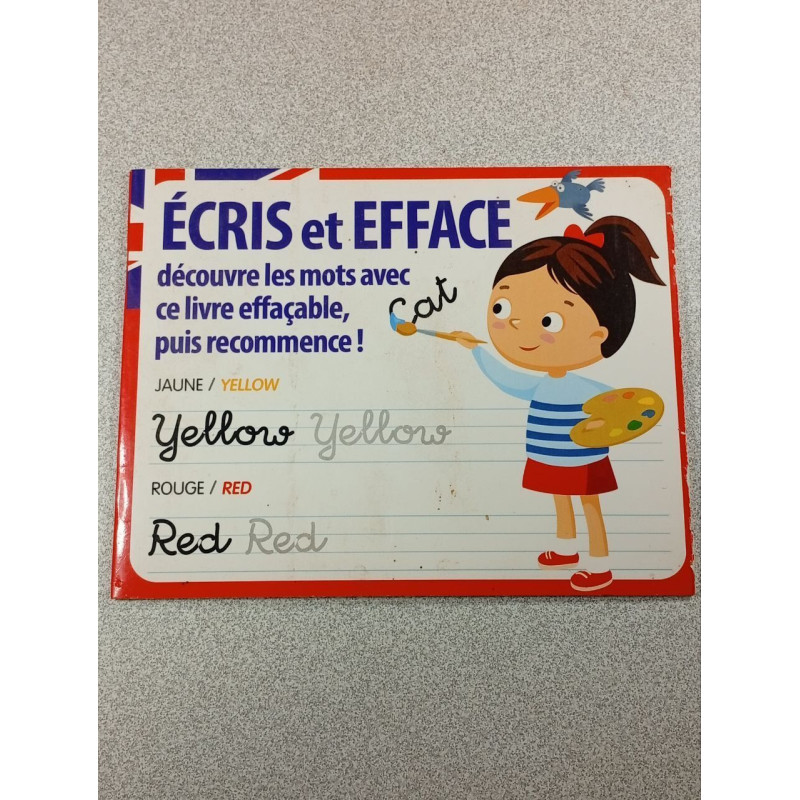 ÉCRIS et EFFACE
découvre les mots avec
ce livre effaçable,
puis recommence !
Cat
JAUNE / YELLOW
Yellow Yellow
ROUGE / RED
Red Red